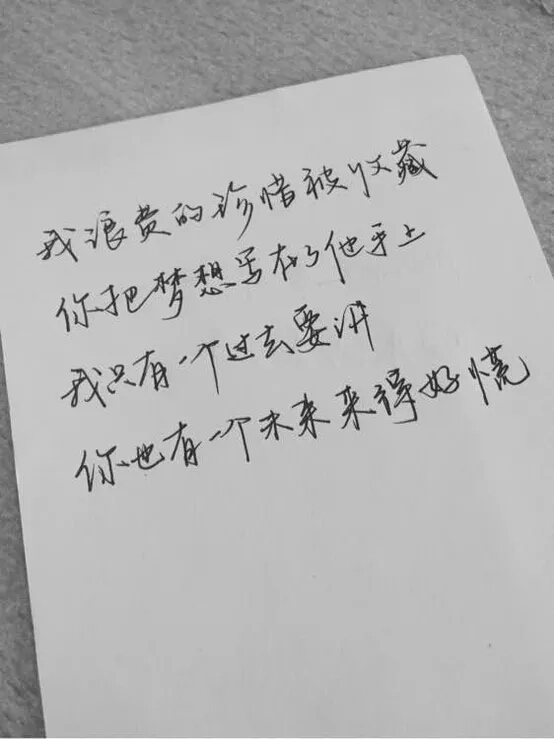 我浪费的珍惜被收藏
你把梦想写在了他手上
我只有一个过去要讲
你也有一个未来来得好慌